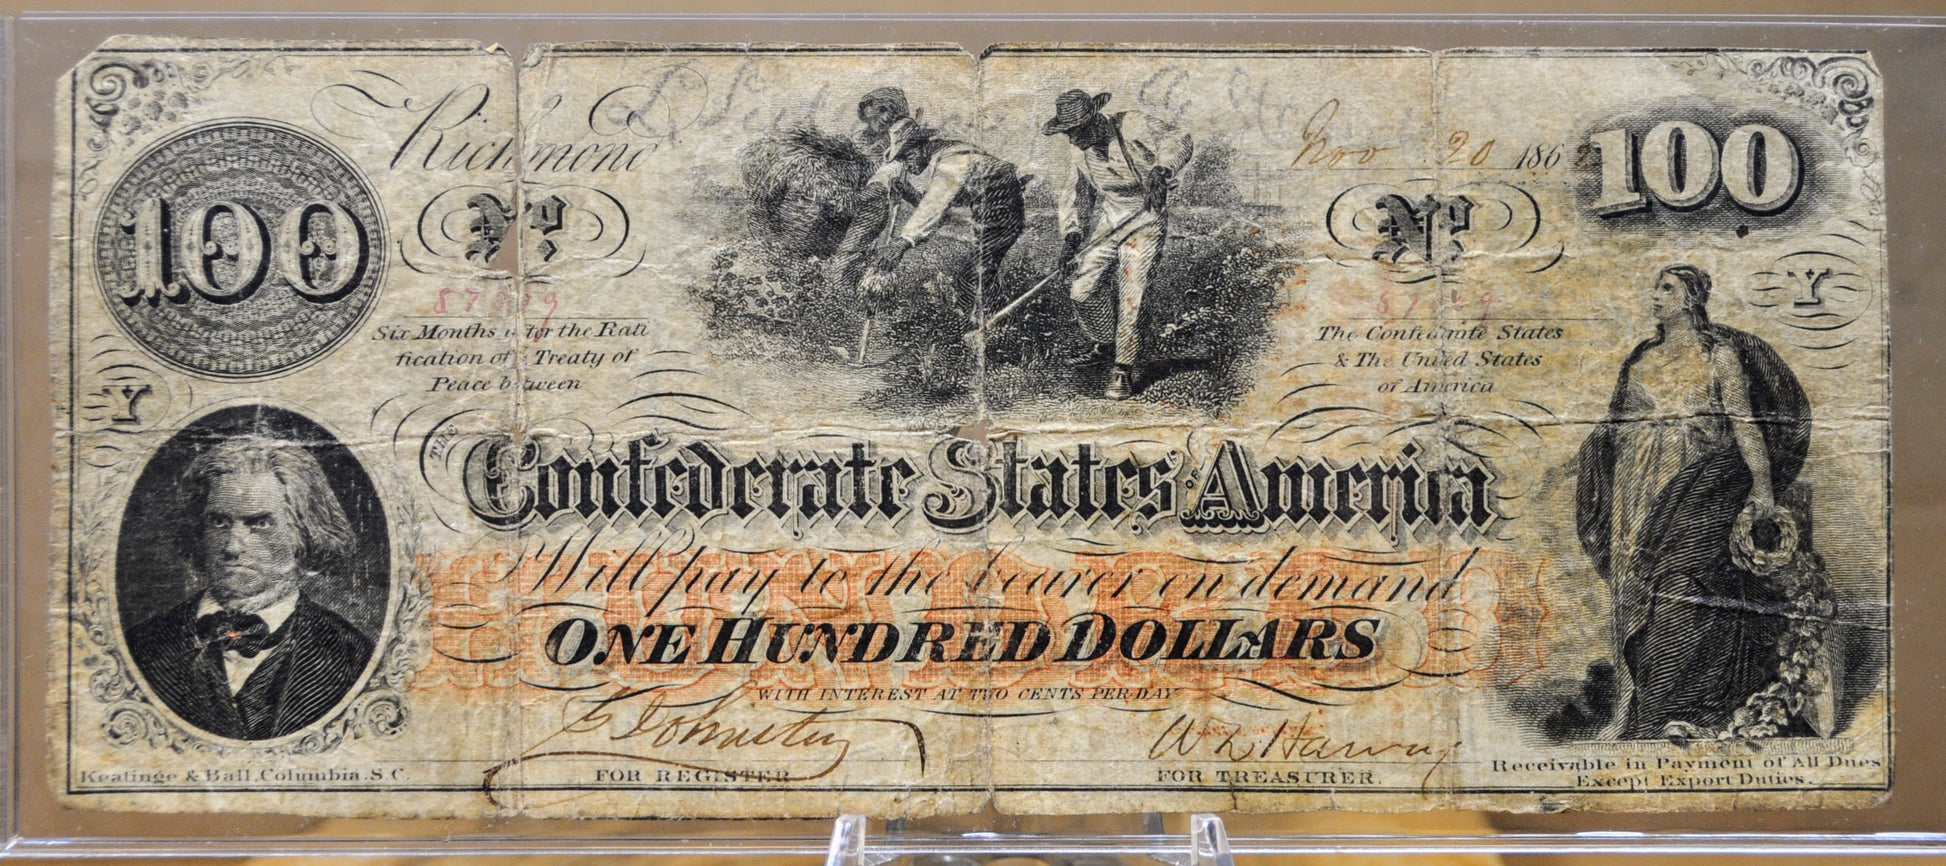 Richmond
Nov 20 1862
100
100
No
No
Y
Six Months after the Rati
fication of a Treaty of
Peace between
The Confederate States
& The United States
of America
Y
THE
Confederate States America
HUNDRED
Will pay to the bearer on demand
ONE HUNDRED DOLLARS
WITH INTEREST AT TWO CENTS PER DAY
Keatinge & Ball, Columbia. S.C.
FOR REGISTER
FOR TREASURER.
Receivable in Payment of All Dues
Except Export Duties.